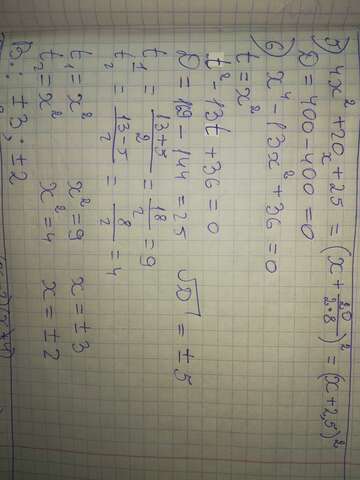 5) 4x² + 20x + 25 = (x + 20/2·8)² = (x + 2,5)²
D = 400 - 400 = 0
6) x⁴ - 13x² + 36 = 0
t = x²
t² - 13t + 36 = 0
D = 169 - 144 = 25 √D = ±5
t₁ = 13+5/2 = 18/2 = 9
t₂ = 13-5/2 = 8/2 = 4
t₁ = x² x² = 9 x = ±3
t₂ = x² x² = 4 x = ±2
В.: ±3; ±2